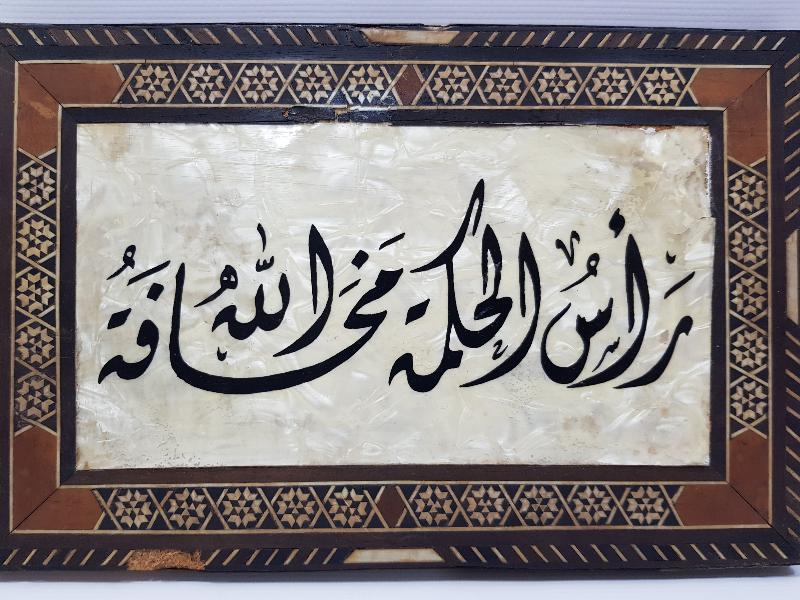 رَأْسُ الحِكمة مَخَافَةُ اللّٰهِ